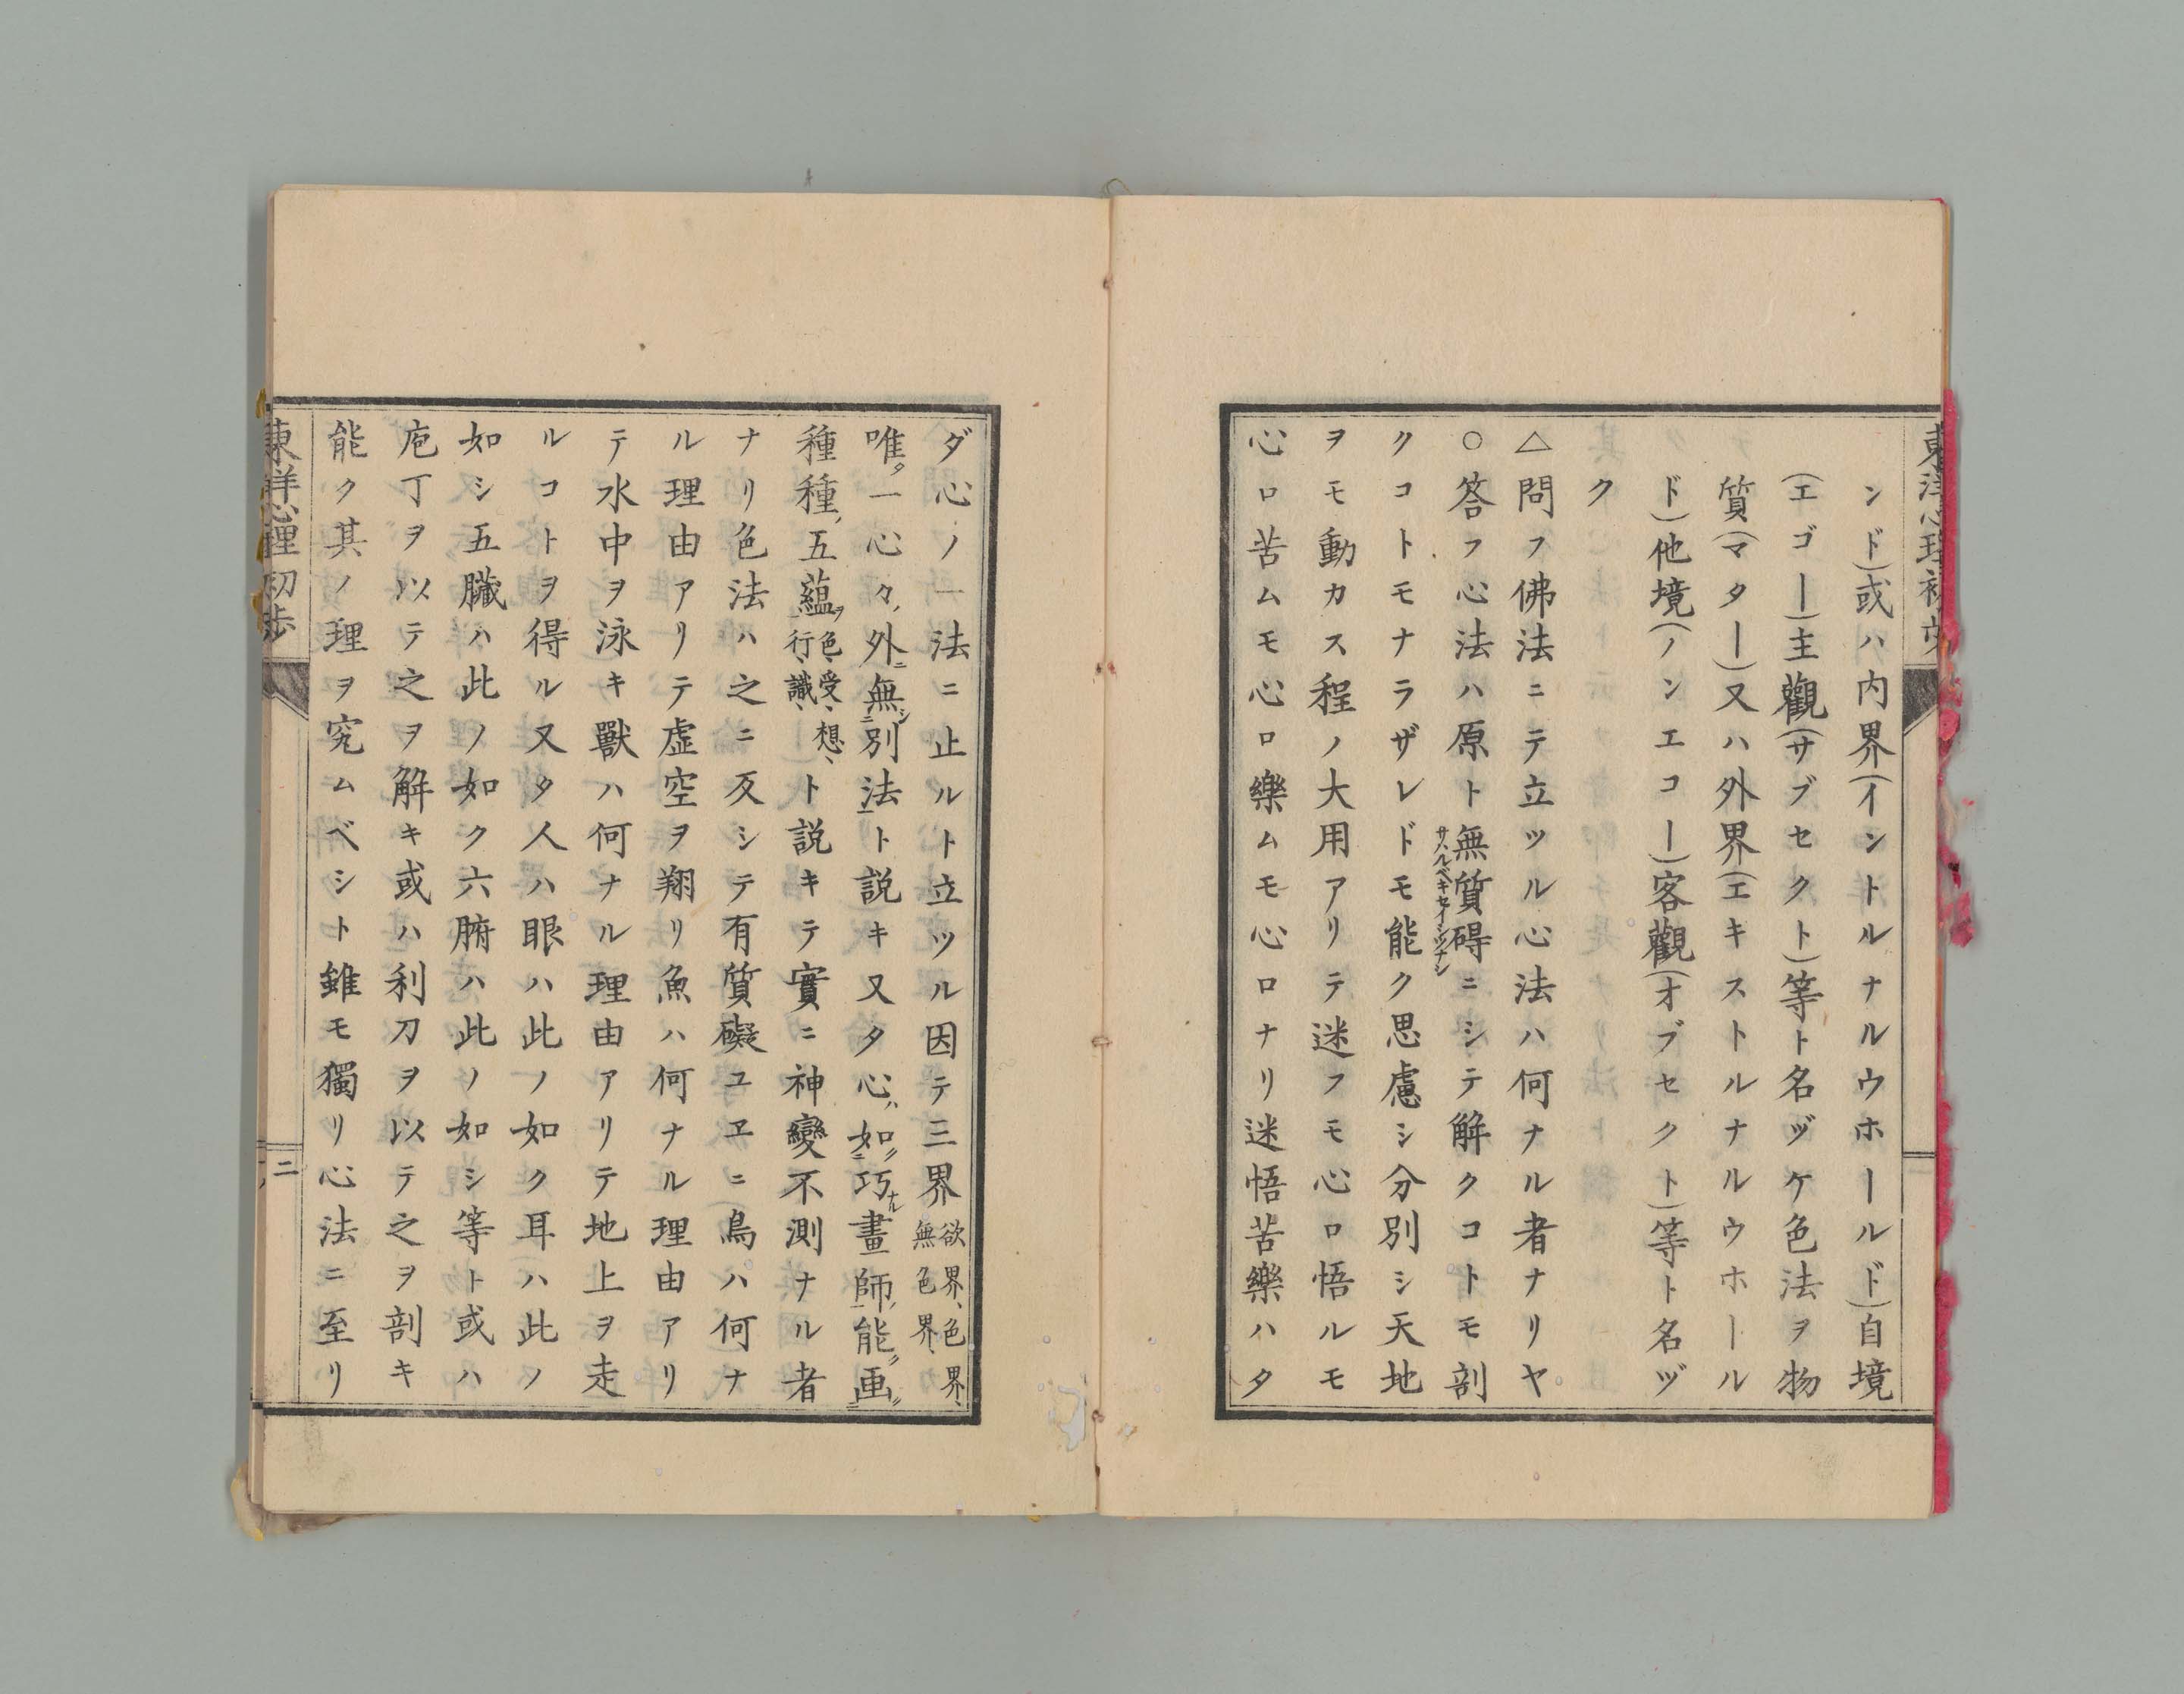 東洋心理初歩
ンド)或ハ内界(イントルナルウホールド)自境
(エゴー)主觀(サブセクト)等ト名ヅケ色法ヲ物
質(マター)又ハ外界(エキストルナルウホール
ド)他境(ノンエコー)客觀(オブセクト)等ト名ヅ
ク
△問フ佛法ニテ立ツル心法ハ何ナル者ナリヤ
○答フ心法ハ原ト無質碍ニシテ解クコトモ剖
サハルベキセイシツナシ
クコトモナラザレドモ能ク思慮シ分別シ天地
ヲモ動カス程ノ大用アリテ迷フモ心ロ悟ルモ
心ロ苦ムモ心ロ樂ムモ心ロナリ迷悟苦樂ハタ
ダ心ノ一法ニ止ルト立ツル因テ三界欲界、色界、無色界、
唯タ一心々ノ外ニ無シ二別法一ト説キ又タ心ハ如シ二巧ナル畫師ノ一能ク画ク二
種種ノ五蘊ヲ一色、受、想、行、識、ト説キテ實ニ神變不測ナル者
ナリ色法ハ之ニ反シテ有質礙ユヱニ鳥ハ何ナ
ル理由アリテ虚空ヲ翔リ魚ハ何ナル理由アリ
テ水中ヲ泳キ獸ハ何ナル理由アリテ地上ヲ走
ルコトヲ得ル又タ人ハ眼ハ此ノ如ク耳ハ此ノ
如シ五臟ハ此ノ如ク六腑ハ此ノ如シ等ト或ハ
庖丁ヲ以テ之ヲ解キ或ハ利刀ヲ以テ之ヲ剖キ
能ク其ノ理ヲ究ムベシト雖モ獨リ心法ニ至リ
東洋心理初歩
二